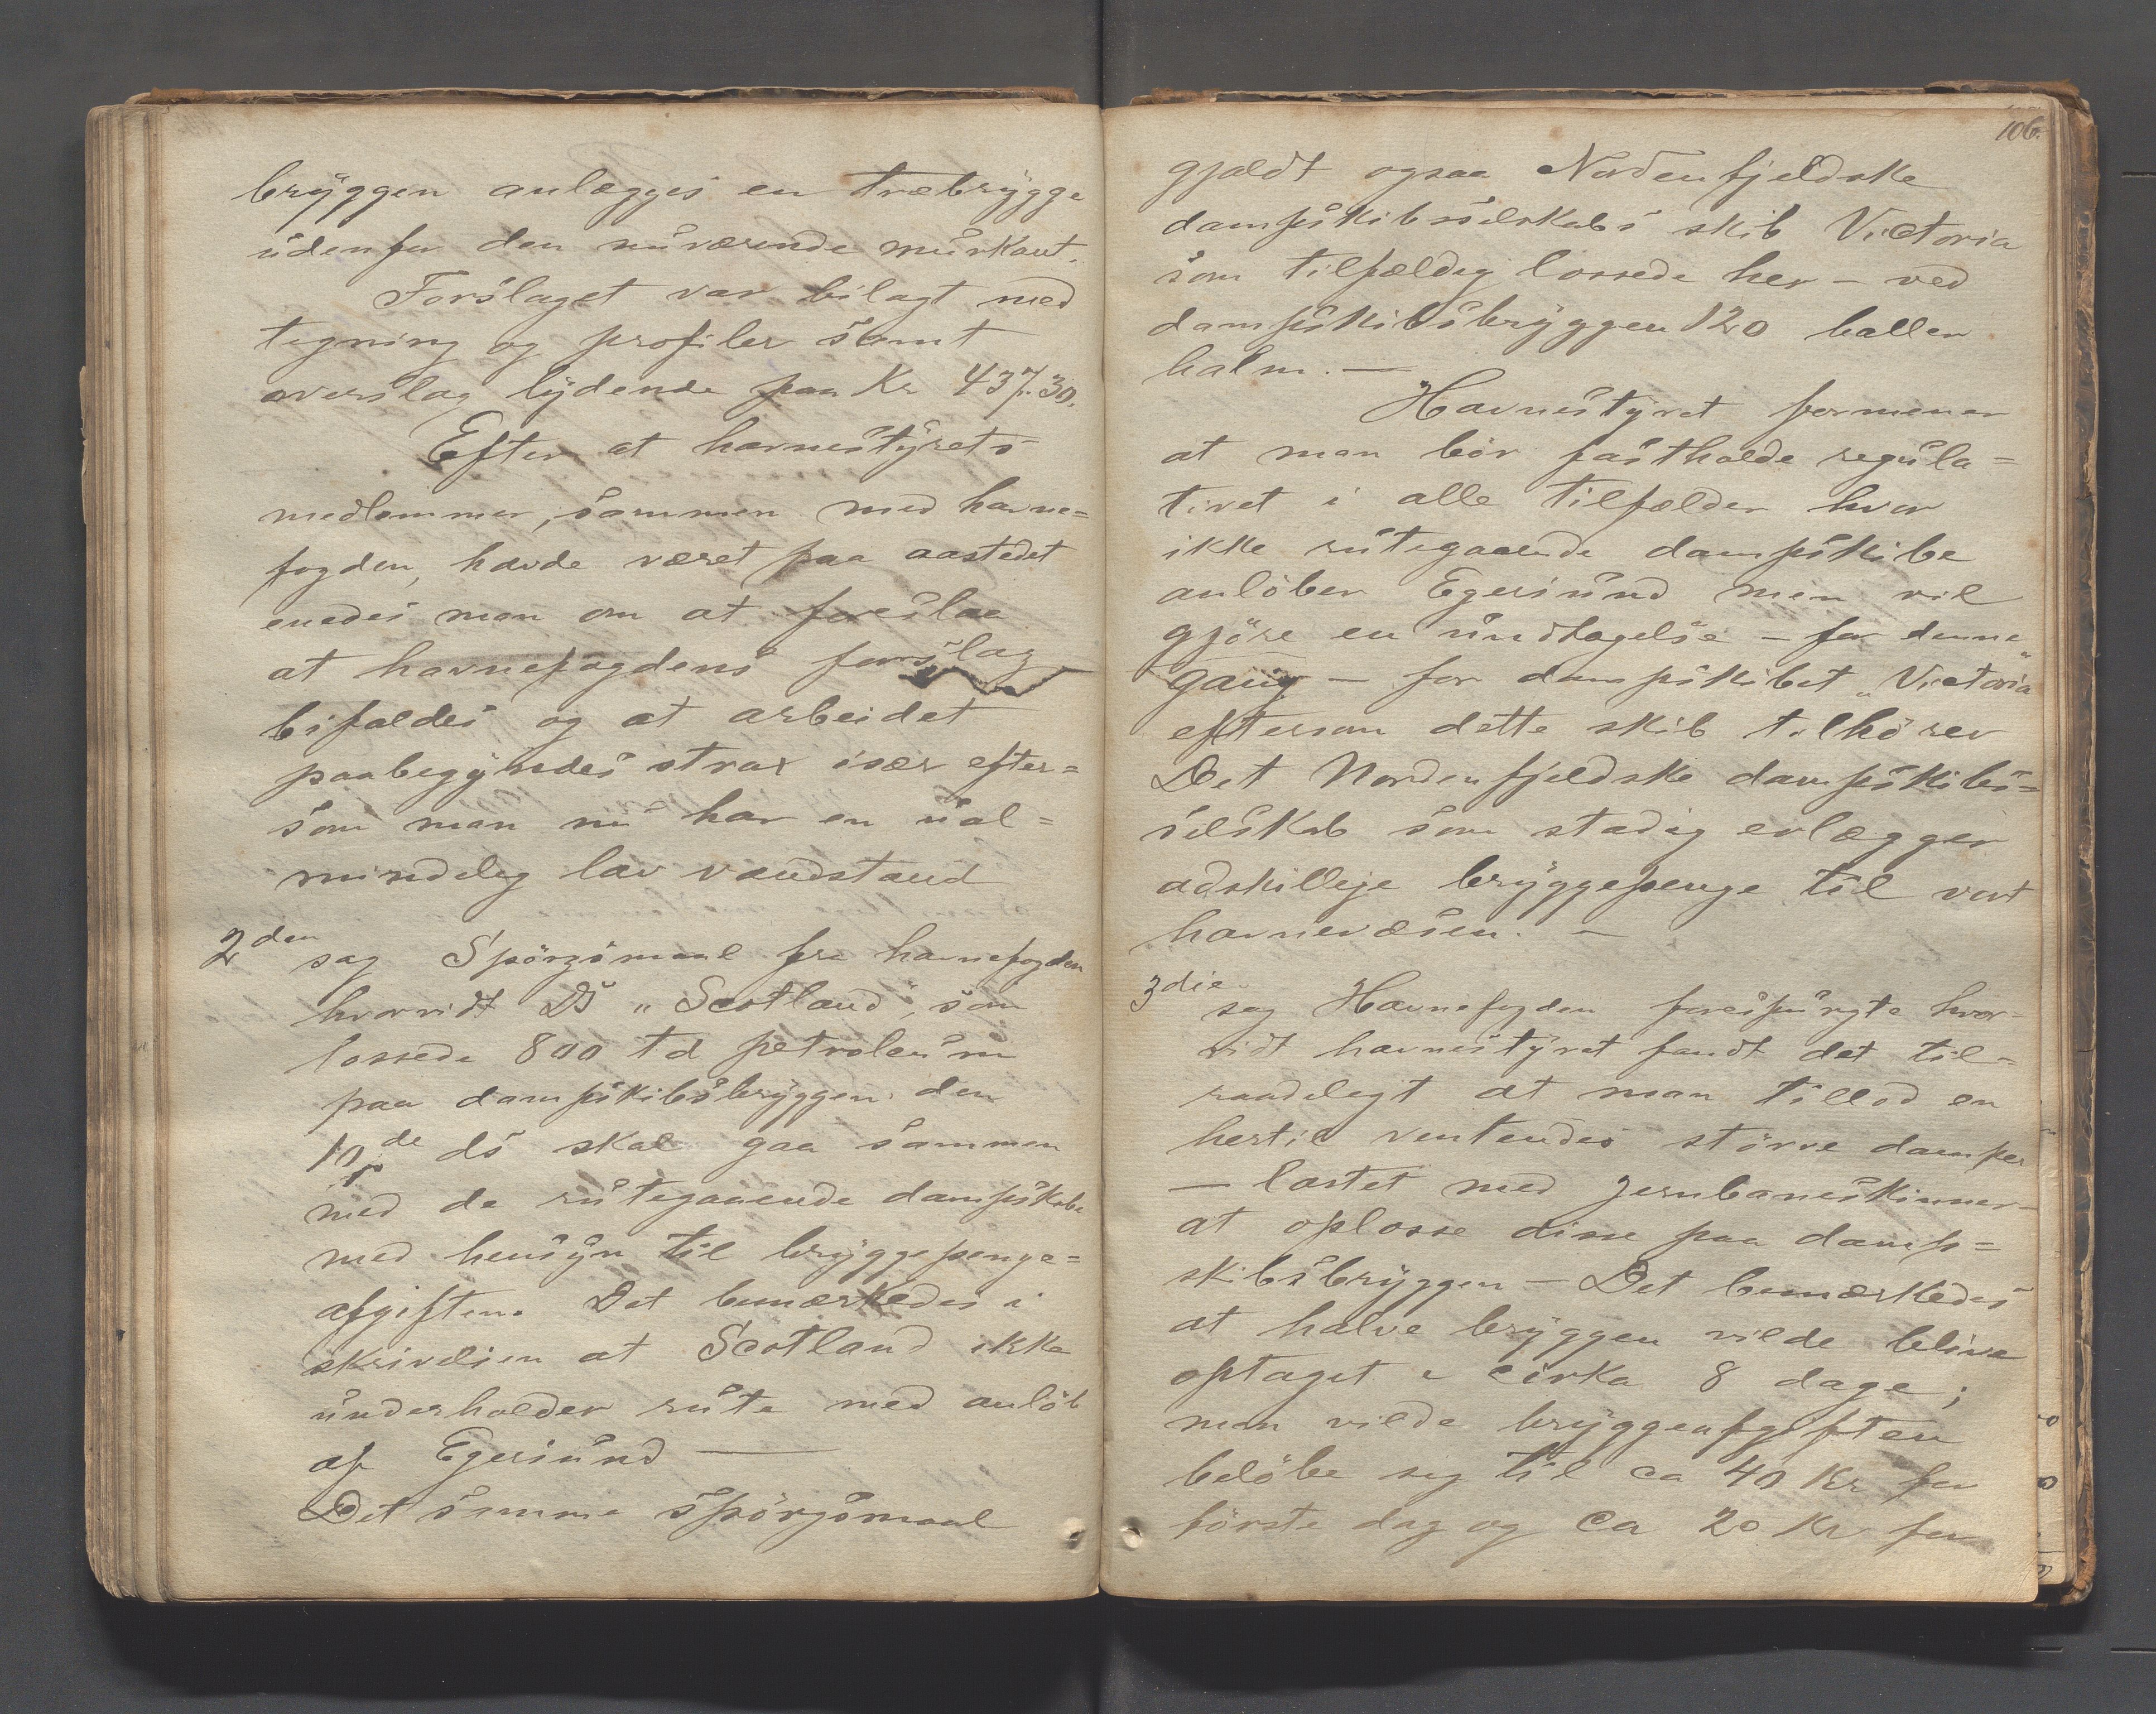 bryggen anlægges en træbrygge
udenfor den nuværende murkant.
Forslaget var bilagt med
tegning og profiler samt
overslag lydende paa Kr 437.30.
Efter at havnestyrets
medlemmer, sammen med havne=
fogden, havde været paa aastedet
enedes man om at foreslaa
at havnefogdens forslag
bifaldes og at arbeidet
paabegyndes strax især efter=
som man nu har en ual=
mindelig lav vandstand
2den sag Spörgsmaal fra havnefogden
hvorvidt DS "Scotland", som
lossede 800 td petroleum
paa dampskibsbryggen den
10de ds skal gaa sammen
med de rutegaaende dampskibe
med hensyn til bryggepenge=
afgiften. Det bemærkedes i
skrivelsen at Scotland ikke
underholder rute med anlöb
af Egersund —
Det samme spörgsmaal
106.
gjaldt ogsaa Nordenfjeldske
dampskibsselskabs skib Victoria
som tilfældig lossede her – ved
dampskibsbryggen 120 baller
halm. —
Havnestyret formener
at man bör fastholde regula=
tivet i alle tilfælder hvor
ikke rutegaaende dampskibe
anlöber Egersund men vil
gjöre en undtagelse – for denne
gang – for dampskibet "Victoria"
eftersom dette skib tilhörer
Det Nordenfjeldske dampskibs=
selskab som stadig erlægger
adskillige bryggepenge til vort
havnevæsen. —
3die sag Havnefogden forespurgte hvor-
vidt havnestyret fandt det til=
raadeligt at man tillod en
hertil ventendes större damper
– lastet med jernbaneskinner –
at oplosse disse paa damp=
skibsbryggen – Det bemærkedes
at halve bryggen vilde blive
optaget i cirka 8 dage;
man vilde bryggeafgiften
belöbe sig til ca 40 Kr for
förste dag og ca 20 Kr for